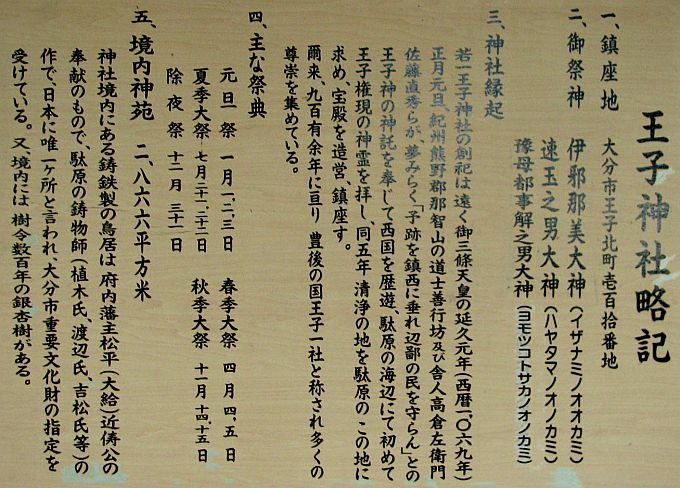 王子神社略記
一、鎮座地　大分市王子北町壱百拾番地
二、御祭神　伊邪那美大神（イザナミノオオカミ）
速玉之男大神（ハヤタマノオノカミ）
豫母都事解之男大神（ヨモツコトサカノオノカミ）
三、神社縁起
若一王子神社の創祀は遠く御三條天皇の延久元年（西暦一、〇六九年）
正月元旦、紀州熊野郡那智山の道士善行坊及び舎人高倉左衛門
佐藤直秀らが、夢みらく「予跡を鎮西に垂れ辺鄙の民を守らん」との
王子神の神託を奉じて西国を歴遊、駄原の海辺にて初めて
王子権現の神霊を拝し、同五年 清浄の地を駄原の この地に
求め、宝殿を造営 鎮座す。
爾来、九百有余年に亘り 豊後の国王子一社と称され多くの
尊崇を集めている。
四、主な祭典
元旦祭　一月一、二、三日　春季大祭　四月四、五日
夏季大祭　七月二十一、二十二日　秋季大祭　十一月十四、十五日
除夜祭　十二月三十一日
五、境内神苑　二、八六六平方米
神社境内にある鋳鉄製の鳥居は 府内藩主松平（大給）近儔公の
奉献のもので、駄原の鋳物師（植木氏、渡辺氏、吉松氏等）の
作で、日本に唯一ヶ所と言われ、大分市重要文化財の指定を
受けている。又 境内には 樹令数百年の銀杏樹がある。